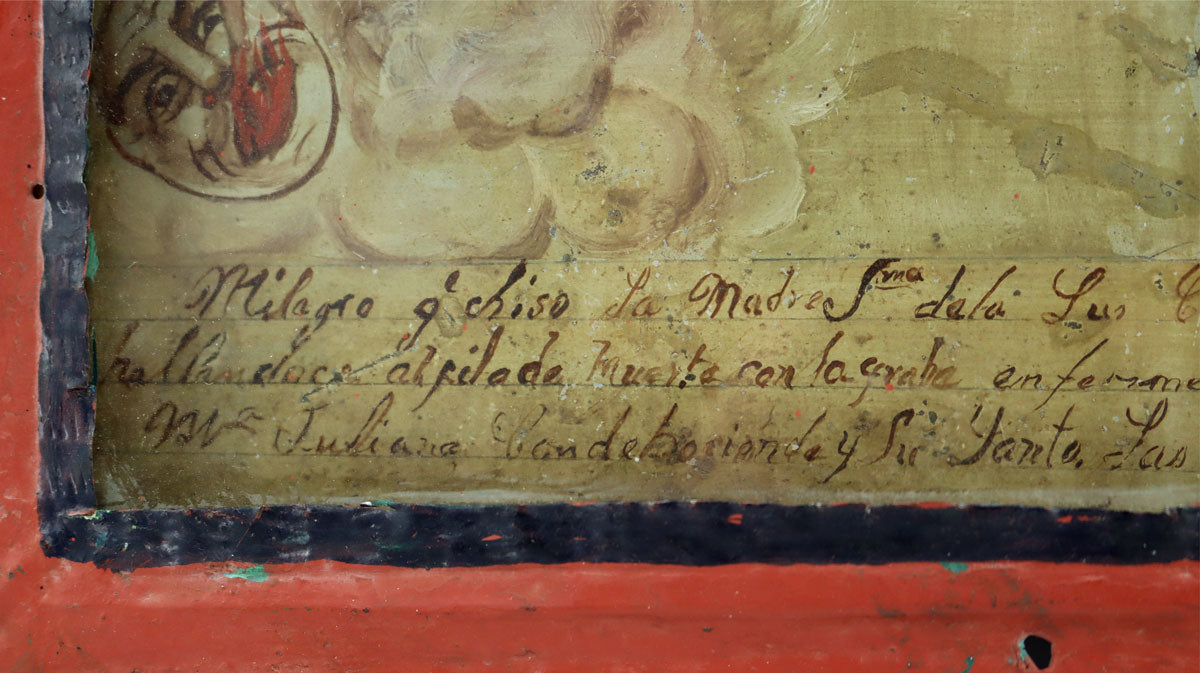 Milagro q.e hiso la Madre Sma dela Lus
hallandoce alfilode muerte con la grabe enferme
Ma Juliana Con debocion de y Su Santo. Las